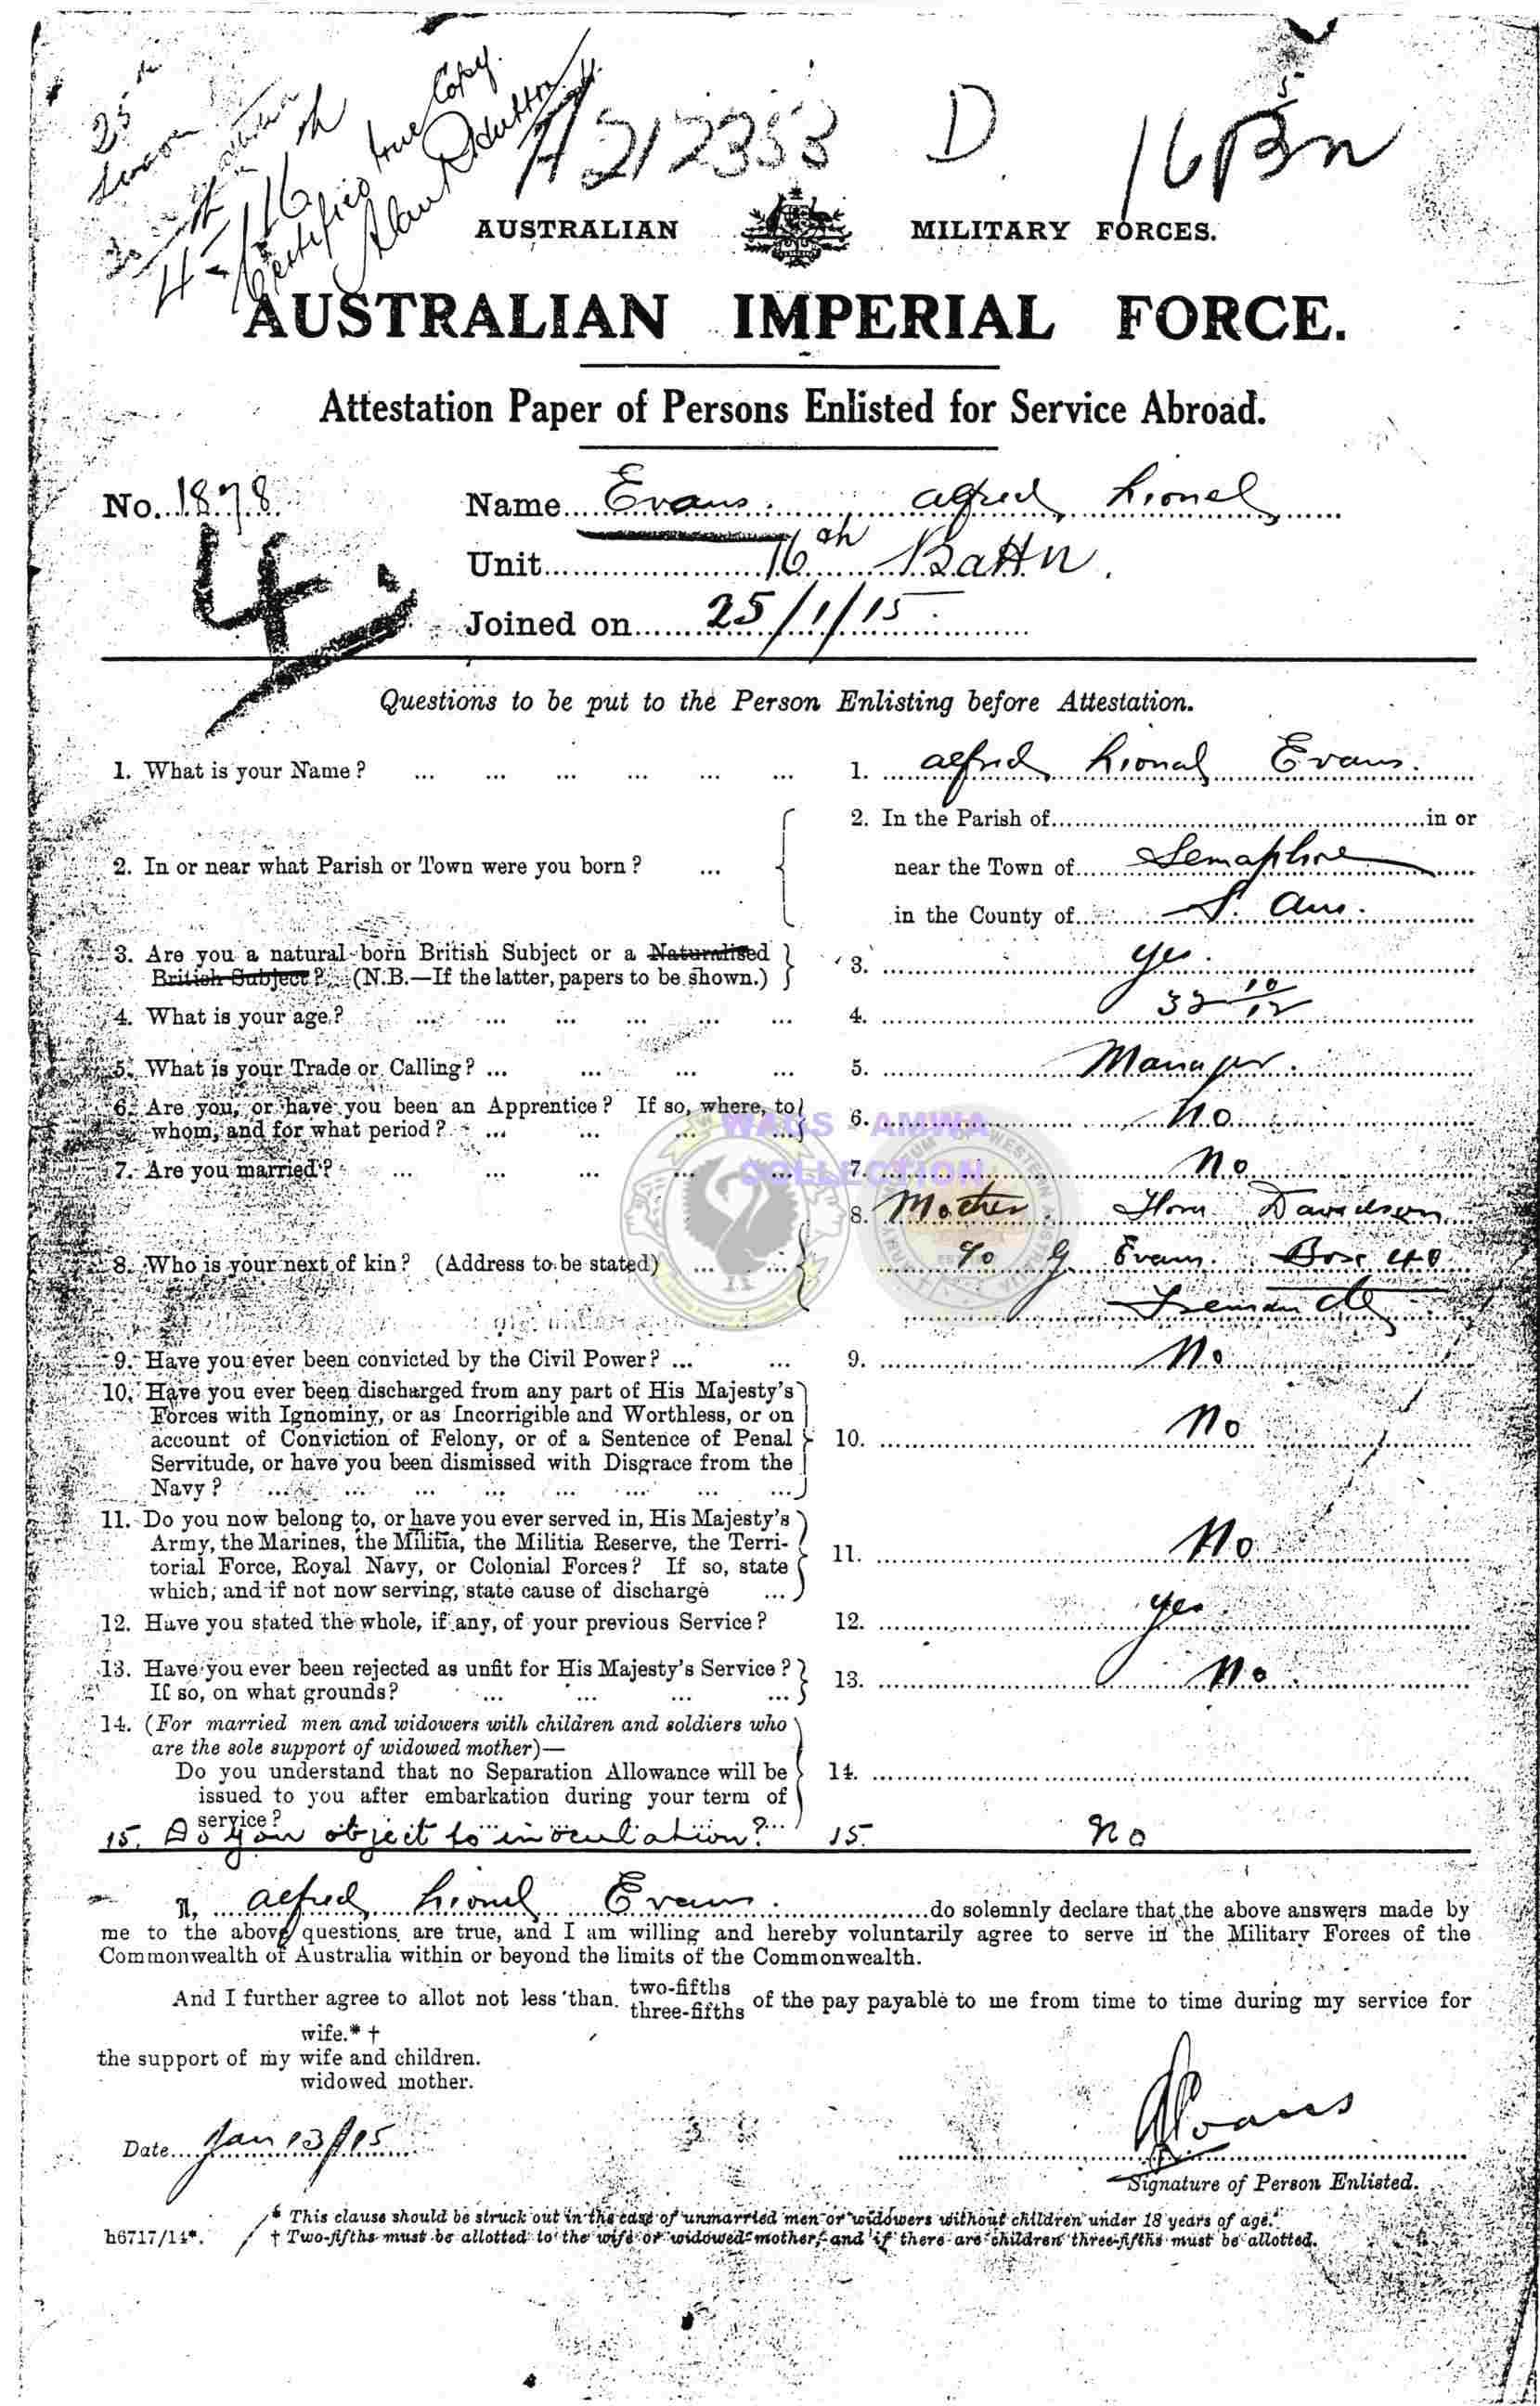 Certified true Copy.
A212353 D 16Bn
AUSTRALIAN MILITARY FORCES.
AUSTRALIAN IMPERIAL FORCE.
Attestation Paper of Persons Enlisted for Service Abroad.
No. 1878 Name Evans. Alfred Lionel
4
Unit 16th Battn.
Joined on 25/1/15
Questions to be put to the Person Enlisting before Attestation.
1. What is your Name? ... ... ... ... ... ... 1. Alfred Lional Evans.
2. In the Parish of in or
2. In or near what Parish or Town were you born? ... near the Town of Semaphore
in the County of S. Aus.
3. Are you a natural-born British Subject or a Naturalised 3. Yes.
British Subject? (N.B.—If the latter, papers to be shown.)
4. What is your age? ... ... ... ... ... ... 4. 32 10/12
5. What is your Trade or Calling? ... ... ... ... 5. Manager.
6. Are you, or have you been an Apprentice? If so, where, to 6. No
whom, and for what period? ... ... ... ...
7. Are you married? ... ... ... ... ... 7. No
WAGS - AMWA
COLLECTION
8. Mother. Davidson
8. Who is your next of kin? (Address to be stated) ... ... c/o G. Evans. Box 40
Fremantle
9. Have you ever been convicted by the Civil Power? ... ... 9. No
10. Have you ever been discharged from any part of His Majesty's
Forces with Ignominy, or as Incorrigible and Worthless, or on
account of Conviction of Felony, or of a Sentence of Penal 10. No
Servitude, or have you been dismissed with Disgrace from the
Navy? ... ... ... ... ... ... ... ...
11. Do you now belong to, or have you ever served in, His Majesty's
Army, the Marines, the Militia, the Militia Reserve, the Terri-
torial Force, Royal Navy, or Colonial Forces? If so, state 11. No
which, and if not now serving, state cause of discharge ...
12. Have you stated the whole, if any, of your previous Service? 12. Yes
13. Have you ever been rejected as unfit for His Majesty's Service? 13. No.
If so, on what grounds? ... ... ... ...
14. (For married men and widowers with children and soldiers who
are the sole support of widowed mother)—
Do you understand that no Separation Allowance will be 14.
issued to you after embarkation during your term of
service?
15. Do you object to inoculation? 15. No
I, Alfred Lionel Evans. do solemnly declare that the above answers made by
me to the above questions are true, and I am willing and hereby voluntarily agree to serve in the Military Forces of the
Commonwealth of Australia within or beyond the limits of the Commonwealth.
And I further agree to allot not less than two-fifths three-fifths of the pay payable to me from time to time during my service for
wife.* †
the support of my wife and children.
widowed mother.
Date Jan 13/15 A Evans
Signature of Person Enlisted.
* This clause should be struck out in the case of unmarried men or widowers without children under 18 years of age.
h6717/14*. † Two-fifths must be allotted to the wife or widowed mother, and if there are children three-fifths must be allotted.